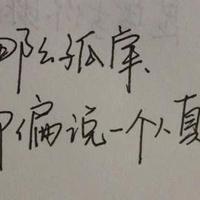 那么孤
偏说一个人真